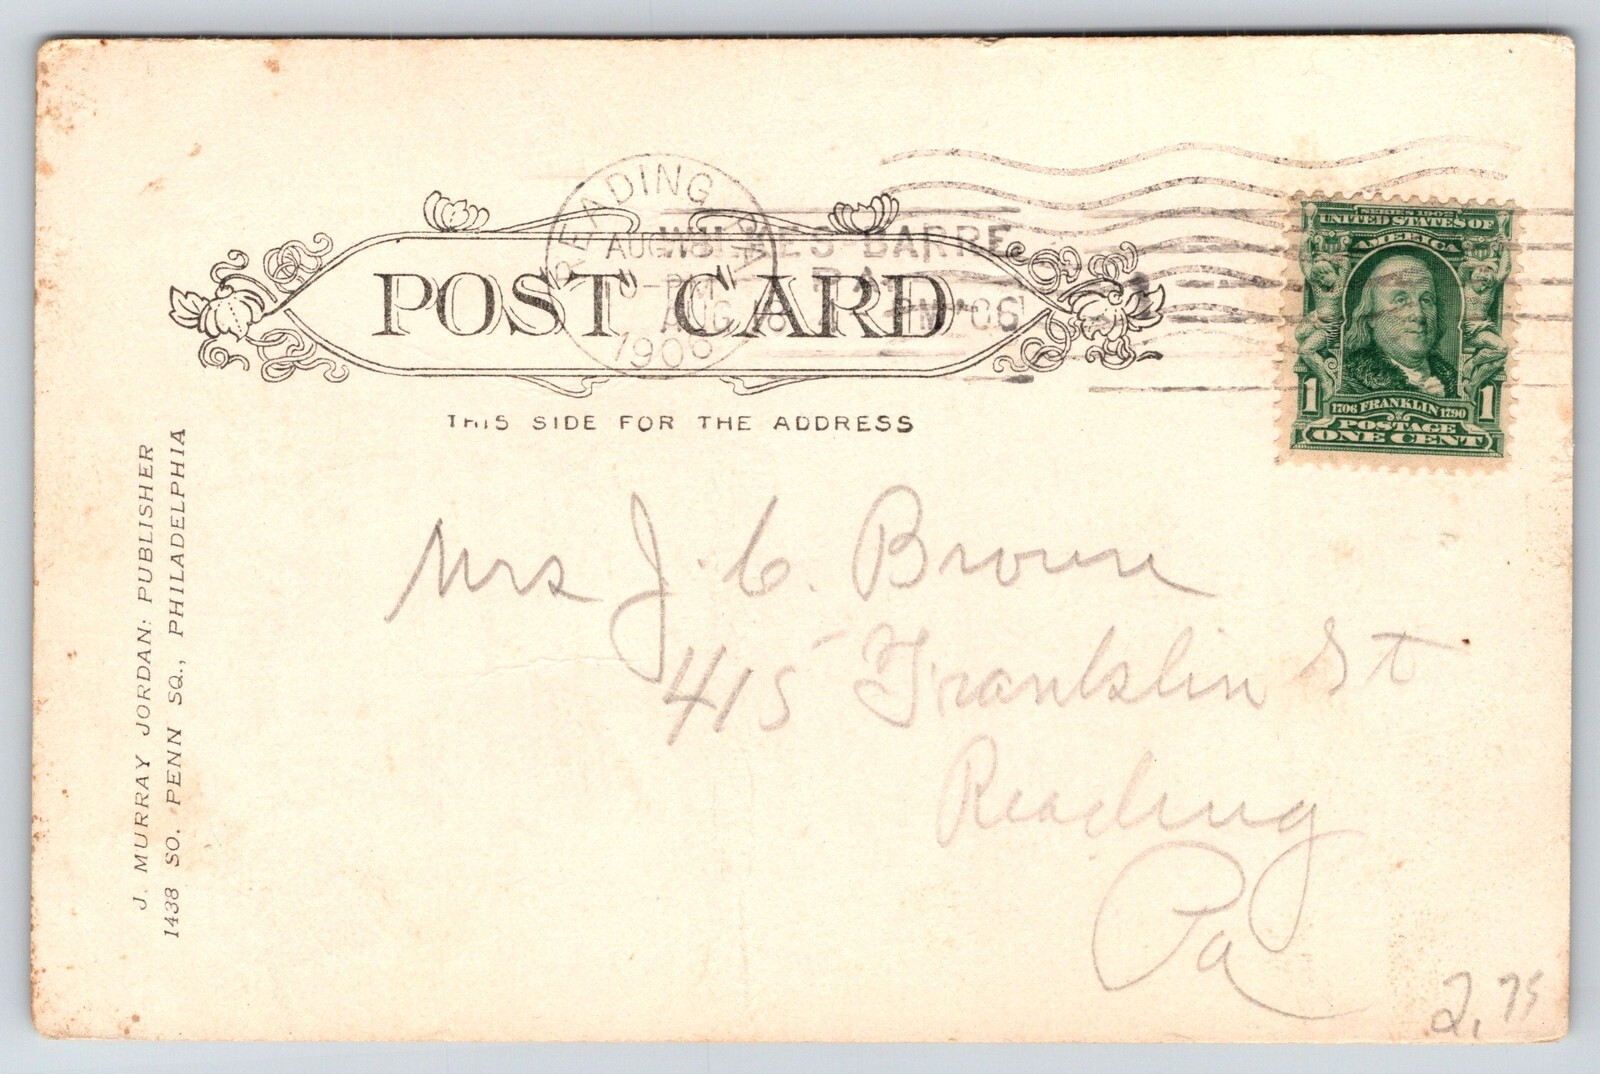 READING
AUG 18
PM
1906
WILKES BARRE
PA.
AUG 18 PM '06
POST CARD
THIS SIDE FOR THE ADDRESS
SERIES 1902
UNITED STATES OF
AMERICA
1 1
1706 FRANKLIN 1790
POSTAGE
ONE CENT
J. MURRAY JORDAN: PUBLISHER
1438 SO. PENN SQ., PHILADELPHIA
Mrs J. C. Brown
415 Franklin St
Reading
Pa
2.75